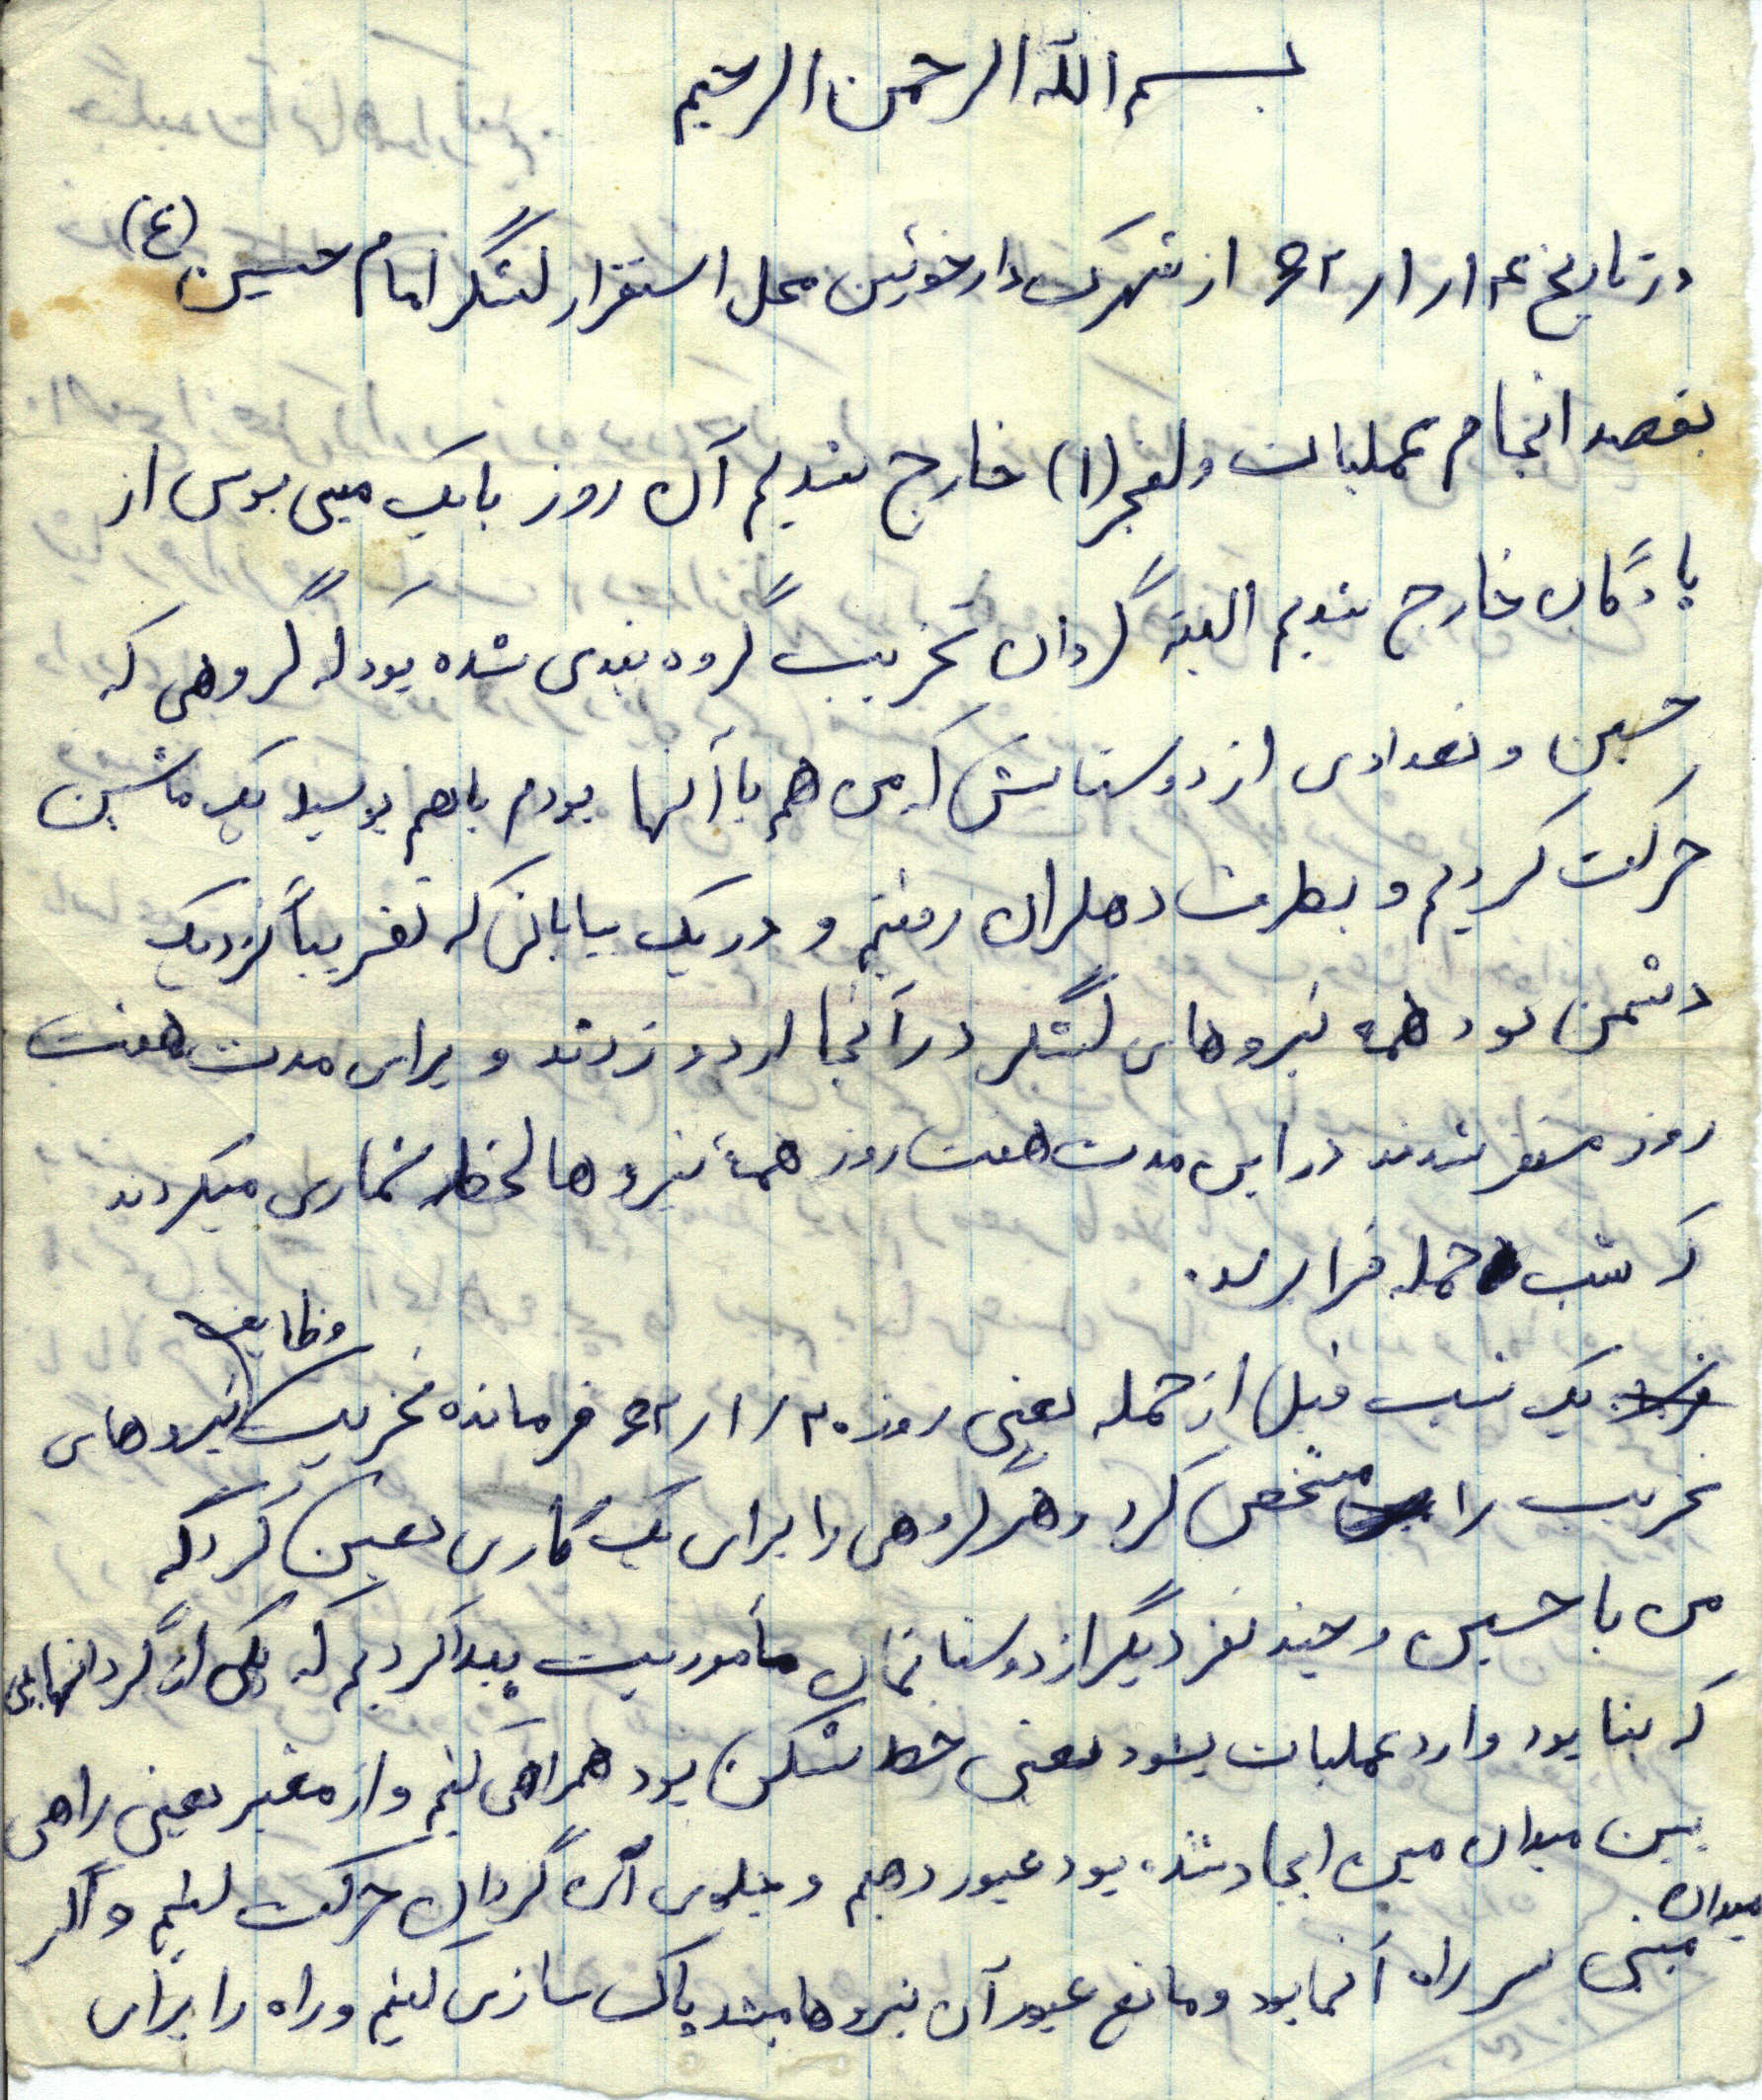 بسم الله الرحمن الرحیم
در تاریخ ۱۴/۱/۶۲ از شهرک دارخوئین محل استقرار لشگر امام حسین (ع)
بقصد انجام عملیات ولفجر (۱) خارج شدیم آن روز با یک مینی بوس از
پادگان خارج شدیم البته گردان تخریب گروه بندی شده بود که گروهی که
حسین و تعدادی از دوستانش که من هم با آنها بودم باهم بوسیله یک ماشین
حرکت کردیم و بطرف دهلران رفتیم و در یک بیابانی که تقریباً نزدیک
دشمن بود همه نیروهای لشگر در آنجا اردو زدند و برای مدت هفت
روز مستقر شدند در این مدت هفت روز همهٔ نیروها لحظه شماری میکردند
که شب حمله فرا رسد.
یک شب قبل از حمله یعنی روز ۲۰/۱/۶۲ فرمانده تخریب وظایف نیروهای
تخریب را مشخص کرد و هر گروهی را برای یک کاری تعیین کرد که
من با حسین و چند نفر دیگر از دوستانمان مأموریت پیدا کردیم که یکی از گردانهایی
که بنا بود وارد عملیات بشود یعنی خط شکن بود همراهی کنیم و از معبر یعنی راهی
بین میدان مین ایجاد شده بود عبور دهیم و جلوی آن گردان حرکت کنیم و اگر
میدان مینی سر راه آنها بود و مانع عبور آن نیروها میشد پاک سازی کنیم و راه را برای